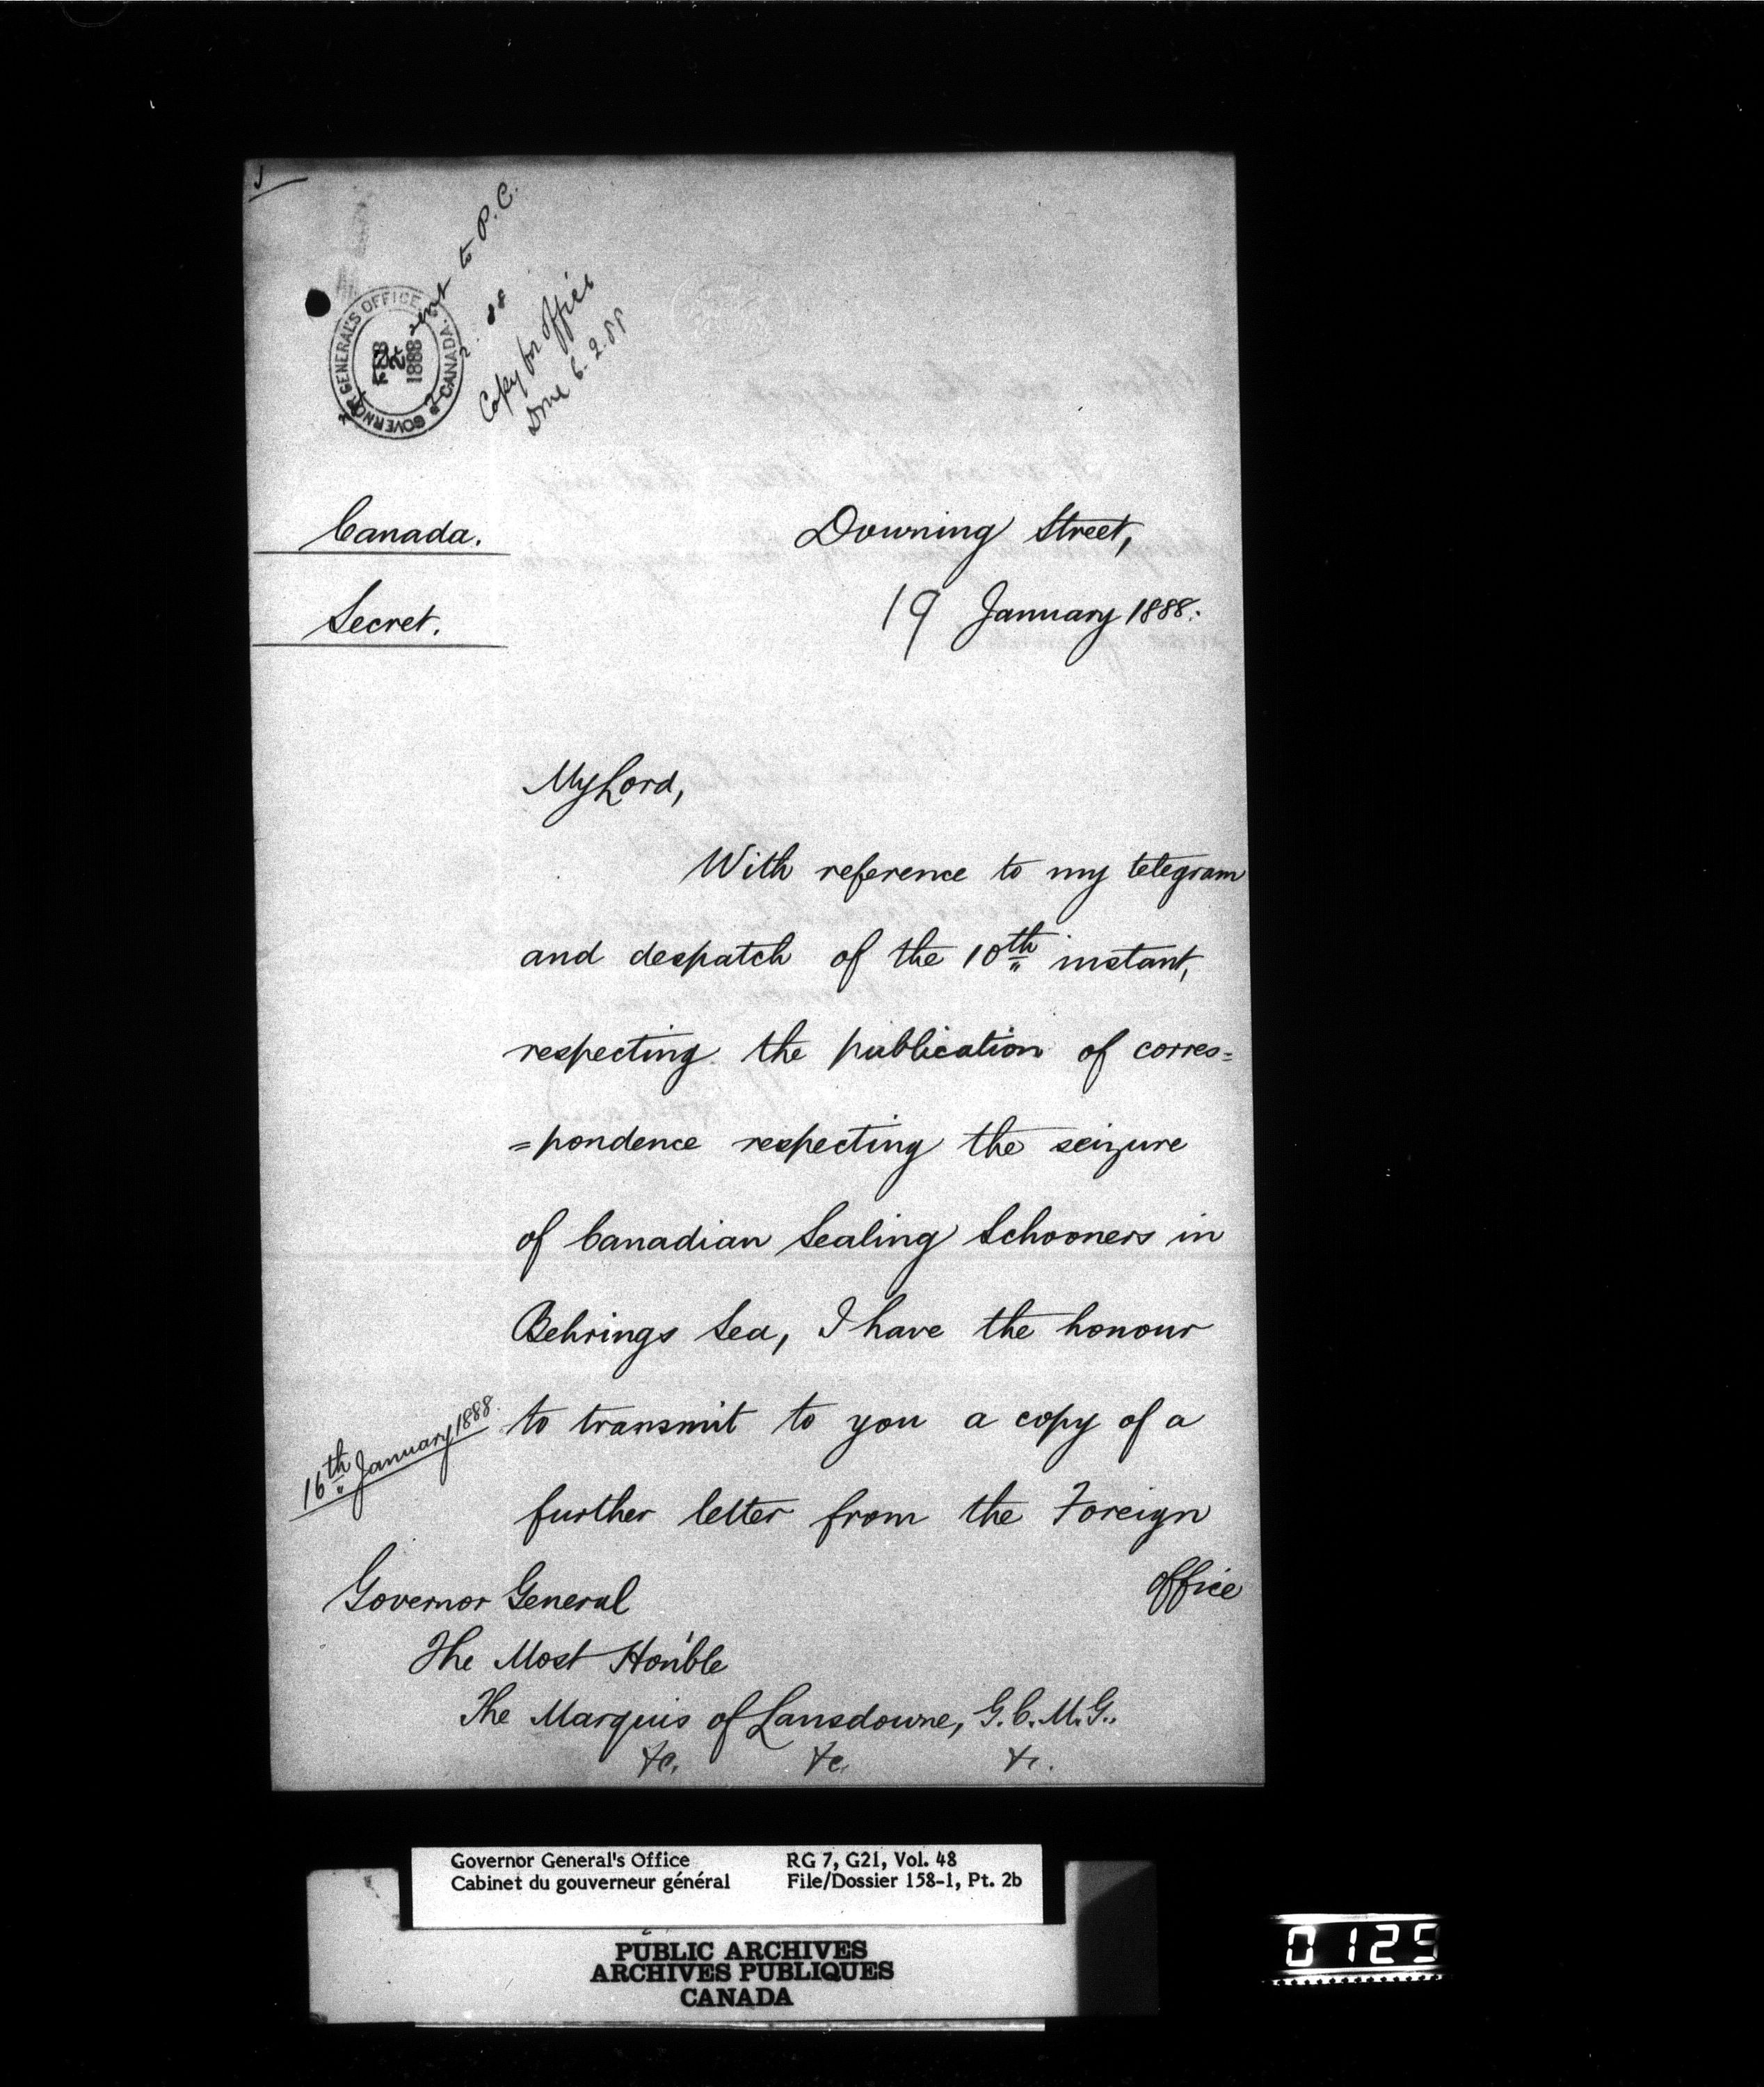 sent to P.C.
Copy for Office
Done 6.2.88
GOVERNOR GENERAL'S OFFICE
CANADA
FEB
2
1888
Canada.
Downing Street,
Secret.
19 January 1888.
My Lord,
With reference to my telegram
and despatch of the 10th instant,
respecting the publication of corres=
=pondence respecting the seizure
of Canadian Sealing Schooners in
Behrings Sea, I have the honour
16th January 1888.
to transmit to you a copy of a
further letter from the Foreign
Office
Governor General
The Most Hon'ble
The Marquis of Lansdowne, G.C.M.G.,
&c. &c. &c.
Governor General's Office RG 7, G21, Vol. 48
Cabinet du gouverneur général File/Dossier 158-1, Pt. 2b
PUBLIC ARCHIVES
ARCHIVES PUBLIQUES
CANADA
0125